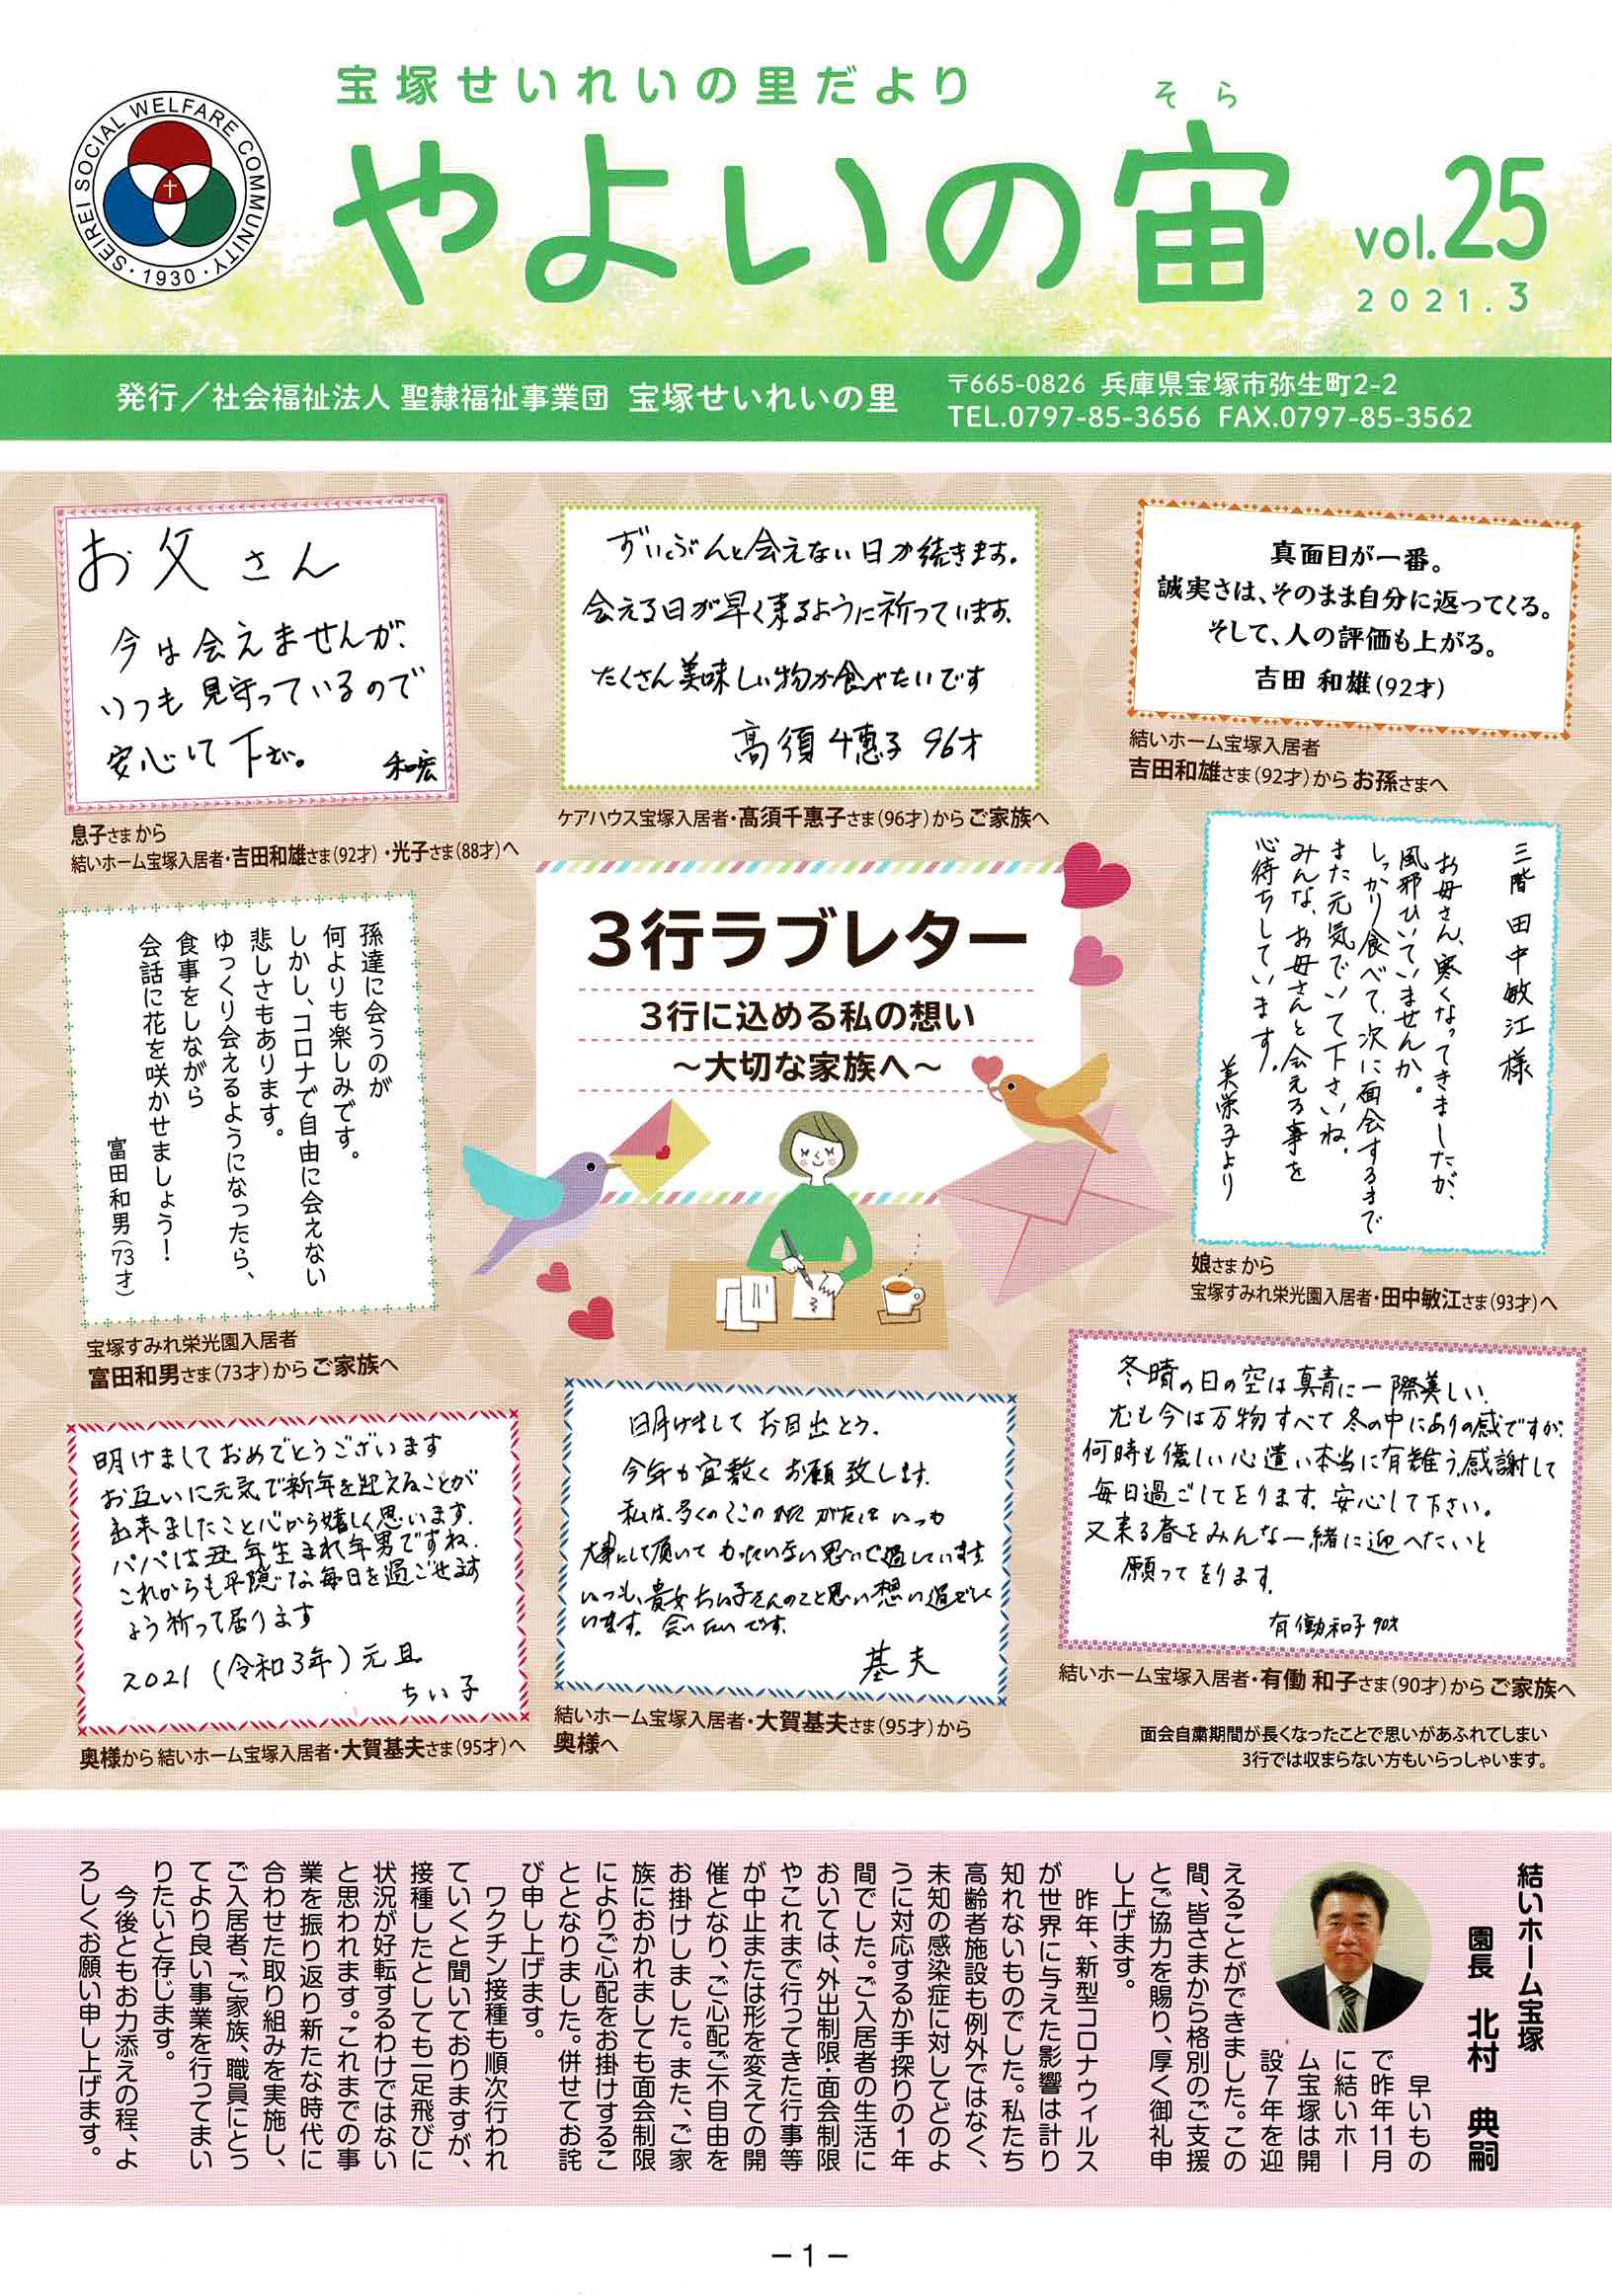 宝塚せいれいの里だより
そら
やよいの宙
vol.25
2021.3
SEIREI SOCIAL WELFARE COMMUNITY
・1930・
発行／社会福祉法人 聖隷福祉事業団 宝塚せいれいの里
〒665-0826 兵庫県宝塚市弥生町2-2
TEL.0797-85-3656 FAX.0797-85-3562
お父さん
今は会えませんが、
いつも見守っているので
安心して下さい。
和宏
息子さまから
結いホーム宝塚入居者・吉田和雄さま(92才)・光子さま(88才)へ
ずいぶんと会えない日が続きます。
会える日が早く来るように祈っています。
たくさん美味しい物が食べたいです
高須千惠子 96才
ケアハウス宝塚入居者・髙須千惠子さま(96才)からご家族へ
真面目が一番。
誠実さは、そのまま自分に返ってくる。
そして、人の評価も上がる。
吉田 和雄(92才)
結いホーム宝塚入居者
吉田和雄さま(92才)からお孫さまへ
孫達に会うのが
何よりも楽しみです。
しかし、コロナで自由に会えない
悲しさもあります。
ゆっくり会えるようになったら、
食事をしながら
会話に花を咲かせましょう！
富田和男(73才)
宝塚すみれ栄光園入居者
富田和男さま(73才)からご家族へ
3行ラブレター
3行に込める私の想い
～大切な家族へ～
三階 田中敏江様
お母さん、寒くなってきましたが、
風邪ひいていませんか。
しっかり食べて、次に面会するまで
また元気でいて下さいね。
みんな、お母さんと会える事を
心待ちしています。
美栄子より
娘さまから
宝塚すみれ栄光園入居者・田中敏江さま(93才)へ
明けましておめでとうございます
お互いに元気で新年を迎えることが
出来ましたこと心から嬉しく思います。
パパは丑年生まれ年男ですね。
これからも平隠な毎日を過ごせます
よう祈って居ります
2021(令和3年)元旦
ちい子
奥様から結いホーム宝塚入居者・大賀基夫さま(95才)へ
明けまして お目出とう。
今年も宜敷く お願致します。
私は、多くのここの
いつも
大事にして頂いて もったいない思いで過しています。
いつも、貴女ちい子さんのこと思い想い過ごして
います。会いたいです。
基夫
結いホーム宝塚入居者・大賀基夫さま(95才)から
奥様へ
冬晴の日の空は真青に一際美しい。
尤も今は万物すべて冬の中にありの感ですが、
何時も優しい心遣い本当に有難う。感謝して
毎日過ごしてをります。安心して下さい。
又来る春をみんな一緒に迎へたいと
願ってをります。
有働和子 90才
結いホーム宝塚入居者・有働 和子さま(90才)からご家族へ
面会自粛期間が長くなったことで思いがあふれてしまい
3行では収まらない方もいらっしゃいます。
結いホーム宝塚
園長 北村 典嗣
早いもの
で昨年11月
に結いホー
ム宝塚は開
設7年を迎
えることができました。この
間、皆さまから格別のご支援
とご協力を賜り、厚く御礼申
し上げます。
昨年、新型コロナウィルス
が世界に与えた影響は計り
知れないものでした。私たち
高齢者施設も例外ではなく、
未知の感染症に対してどのよ
うに対応するか手探りの1年
間でした。ご入居者の生活に
おいては、外出制限・面会制限
やこれまで行ってきた行事等
が中止または形を変えての開
催となり、ご心配ご不自由を
お掛けしました。また、ご家
族におかれましても面会制限
によりご心配をお掛けするこ
ととなりました。併せてお詫
び申し上げます。
ワクチン接種も順次行われ
ていくと聞いておりますが、
接種したとしても一足飛びに
状況が好転するわけではない
と思われます。これまでの事
業を振り返り新たな時代に
合わせた取り組みを実施し、
ご入居者、ご家族、職員にとっ
てより良い事業を行ってまい
りたいと存じます。
今後ともお力添えの程、よ
ろしくお願い申し上げます。
－1－